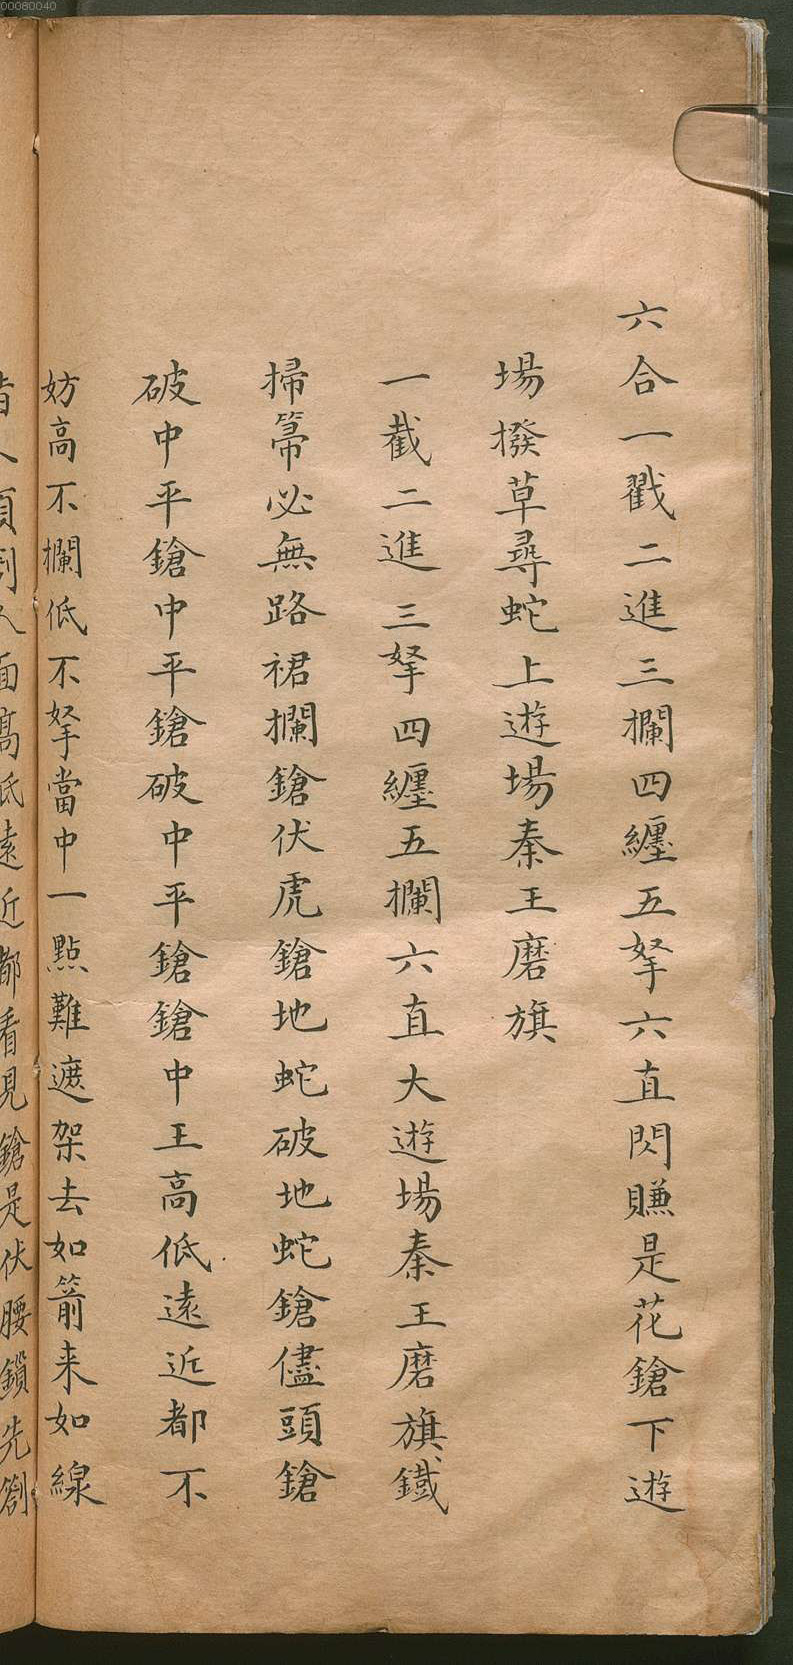 六合一戳二進三攔四纏五拏六直閃賺是花鎗下遊
場撥草尋蛇上遊場秦王磨旗
一截二進三拏四纏五欄六直大遊場秦王磨旗鐵
掃箒必無路裙欄鎗伏虎鎗地蛇破地蛇鎗儘頭鎗
破中平鎗中平鎗破中平鎗鎗中王高低遠近都不
妨高不欄低不拏當中一點難遮架去如箭来如線
面高低遠近都看見鎗是伏腰鎖先劄
00080040